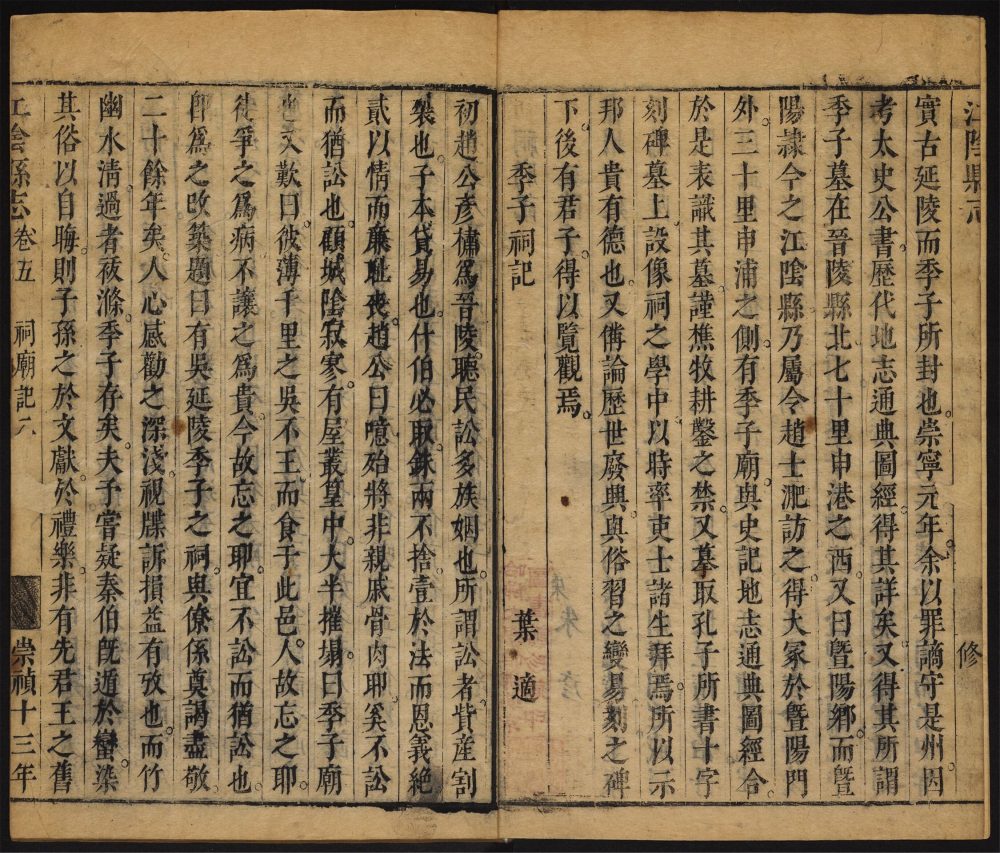 江陰縣志
修
實古延陵而季子所封也崇寧元年余以罪謫守是州因
考太史公書歷代地志通典圖經得其詳矣又得其所謂
季子墓在晉陵縣北七十里申港之西又曰曁陽鄉而曁
陽隷今之江陰縣乃屬令趙士𣶏訪之得大冢於曁陽門
外三十里申浦之側有季子廟與史記地志通典圖經合
於是表識其墓謹樵牧耕鑿之禁又摹取孔子所書十字
刻碑墓上設像祠之學中以時率吏士諸生拜焉所以示
邦人貴有德也又備論歷世廢興與俗習之變易刻之碑
下後有君子得以覽觀焉
季子祠記
葉適
初趙公彥橚爲晉陵聽民訟多族姻也所謂訟者貲產割
裂也子本貸易也什伯必取銖兩不捨壹於法而恩義絶
貳以情而廉耻喪趙公曰噫殆將非親戚骨肉耶奚不訟
而猶訟也顧城陰寂寥有屋叢篁中大半摧塌曰季子廟
也又歎曰彼薄千里之吳不王而食于此邑人故忘之耶
徒爭之爲病不讓之爲貴今故忘之耶宜不訟而猶訟也
卽爲之改築題曰有吳延陵季子之祠與僚係奠謁盡敬
二十餘年矣人心感勸之深淺視牒訴損益有攷也而竹
幽水淸過者祓滌季子存矣夫子嘗疑秦伯旣遁於蠻染
其俗以自晦則子孫之於文獻於禮樂非有先君王之舊
江陰縣志 卷五 祠廟記六 崇禎十三年